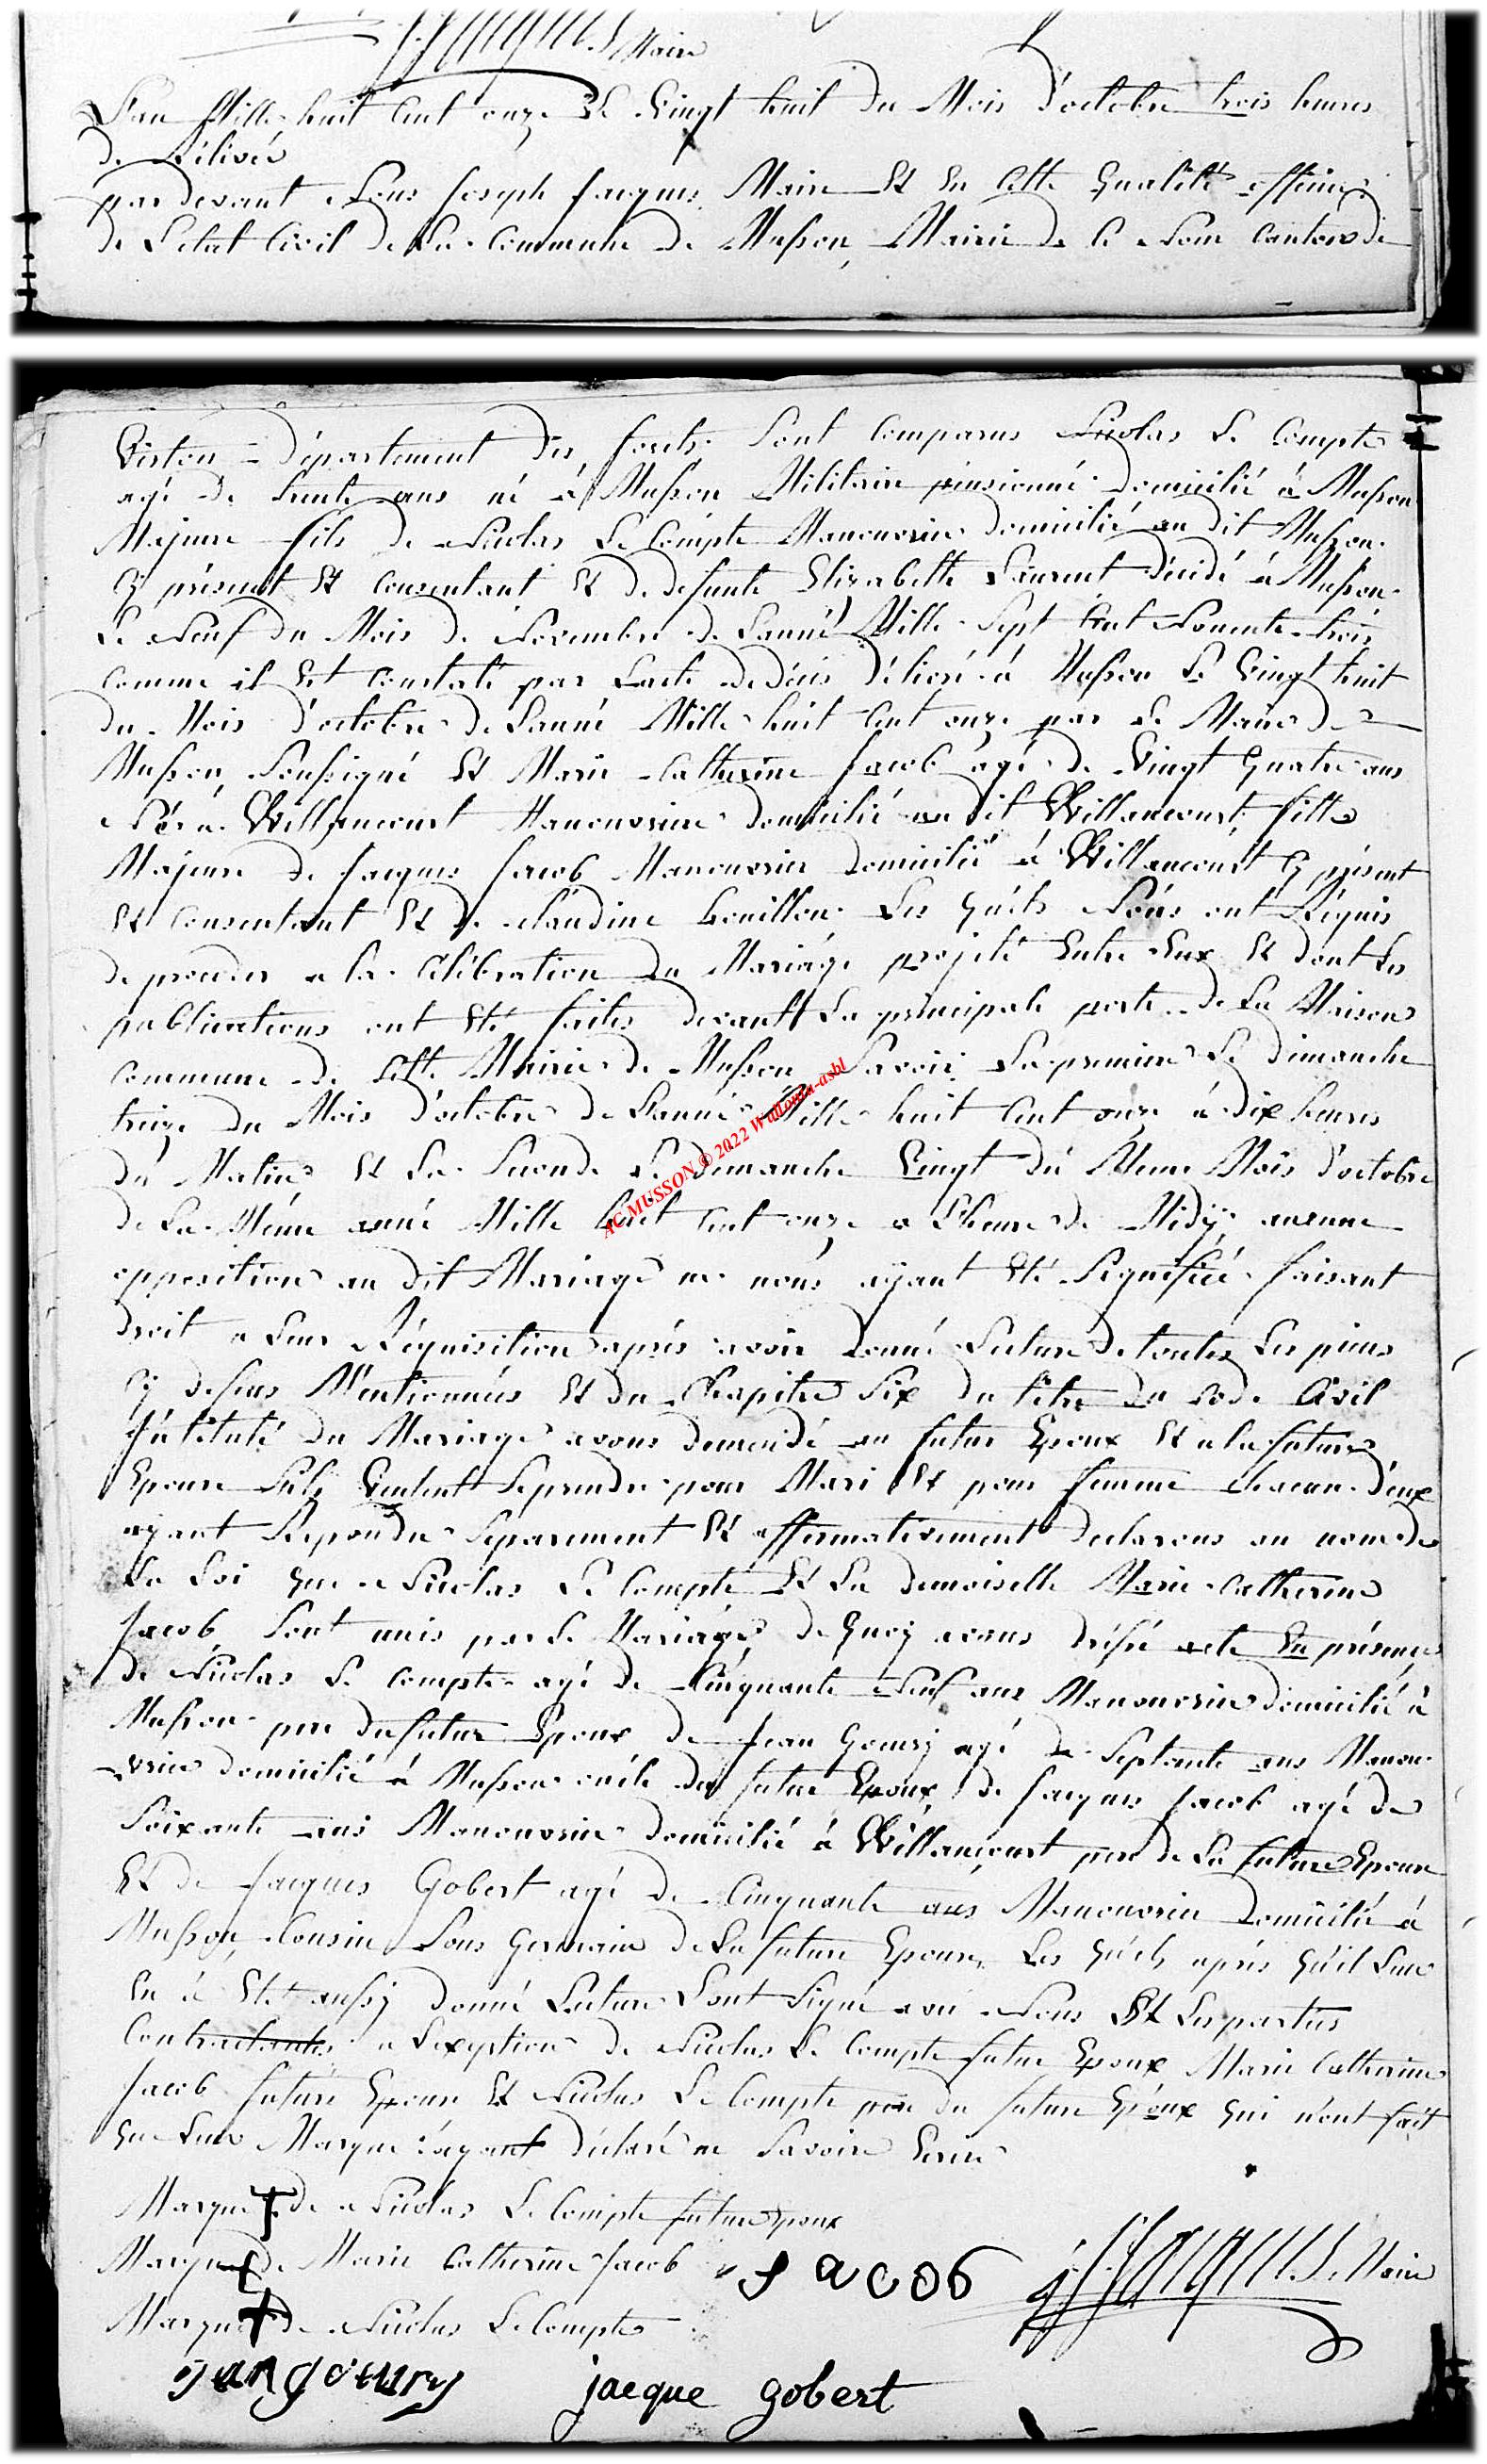 Maire
L'an Mille huit Cent onze Le Vingt huit du Mois d'octobre trois heures
de Rélivée
par devant Nous Joseph Jacques Maire Et En Cette Qualité officier
de L'etat Civil de La Commune de Musson, Mairie de Ce Nom Canton de
Virton Département des forets. Sont Comparus Nicolas Le Compte
agé de trente ans né à Musson Militaire pensionné domicilié à Musson
Majeure fils de Nicolas Le Compte Manouvrier domicilié au dit Musson
Cy présent Et Consentant Et de defunte Elizabette Laurent décidé à Musson
Le Neuf du Mois de Novembre de L'année Mille Sept Cent Nonente trois
Comme il Est Constaté par L'acte de décès Délivré à Musson Le Vingt huit
du Mois d'octobre de L'année Mille huit Cent onze par Le Maire de
Musson Soussigné Et Marie Catherine Jacob agé de Vingt Quatre ans
Née à Willancourt Manouvrier domicilié au dit Willancourt, fille
Majeure de Jacques Jacob Manouvrier domicilié à Willancourt Cy présent
Et Consentant Et de Claudine bouillon Les Quéls Nous ont Réquis
de proceder a la Célébration du Mariage projété Entre Eux Et dont Les
publications ont Eté faites devant La principale porte de La Maison
Commune de Cette Mairie de Musson Savoir La premiere Le dimanche
treize du Mois d'octobre de L'année Mille huit Cent onze à dix heures
du Matin Et La Seconde Le dimanche Vingt du Meme Mois d'octobre
de La Méme année Mille huit Cent onze a L'heure de Midÿ, aucune
opposition au dit Mariage ne nous aÿant Eté Signifiée faisant
droit a Leur Réquisition aprés avoir donné Lecture de toutes Les pieces
Cy dessus Mentionnées Et du Chapitre Six du titre du Code Civil
Intitulé du Mariage avons demendé au futur Epoux Et a la future
Epouse S'ils Veulent Se prendre pour Mari Et pour femme chacun d'eux
aÿant Repondu Séparement Et affirmativement declarons au nom de
La Loi Que Nicolas Le Compte Et La demoiselle Marie Catherine
Jacob Sont unis par Le Mariage de Quoy avons dréssé acte En présence
de Nicolas Le Compte agé de Cinquante Neuf ans Manouvrier domicilié à
Musson pere du futur Epoux de Jean Goury agé de Septante ans Manou-
-vrier domicilié à Musson oncle du futur Epoux, de Jacques Jacob agé de
Soixante ans Manouvrier domicilié à Willancourt pere de La future Epouse
Et de Jacques Gobert agé de Cinquante ans Manouvrier domicilié à
Musson, Cousin Sous Germain de La future Epouse, Les Quels aprés Qu'il Leur
En à Eté aussy donné Lecture L'ont Signé avec Nous Et Les parties
Contractantes a L'exeption de Nicolas Le Compte futur Epoux Marie Catherine
Jacob future Epouse Et Nicolas Le Compte pere du future Epoux Qui n'ont fait
Que Leur Marque ayant déclaré ne Savoire Ecrire
Marque de Nicolas Le Compte future Epoux
Marque de Marie Catherine Jacob Jacob J. Jacques Maire
Marque de Nicolas Le Compte
jangoury jacque gobert
AC MUSSON © 2022 Wallonia-asbl